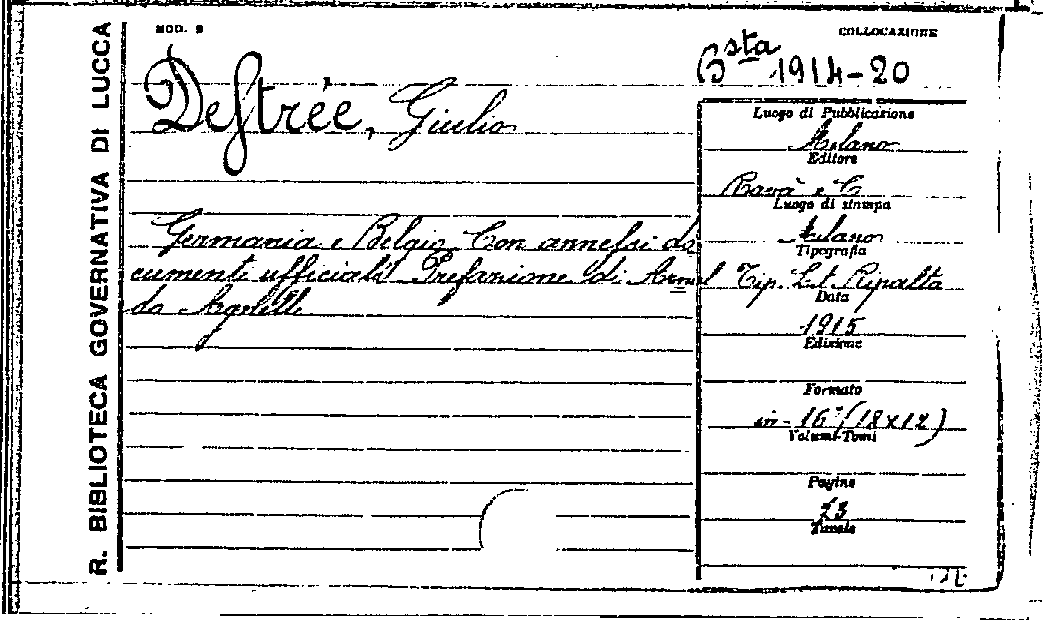 R. BIBLIOTECA GOVERNATIVA DI LUCCA
MOD. 9
COLLOCAZIONE
Bsta 1914-20
Destrée, Giulio
Germania e Belgio Con annessi do
cumenti ufficiali Prefazione di Arnal
do Agnelli
Luogo di Pubblicazione
Milano
Editore
Ravà e C
Luogo di stampa
Milano
Tipografia
Tip. Lit. Ripalta
Data
1915
Edizione
Formato
in-16° (18x12)
Volumi-Tomi
Pagine
23
Tavole